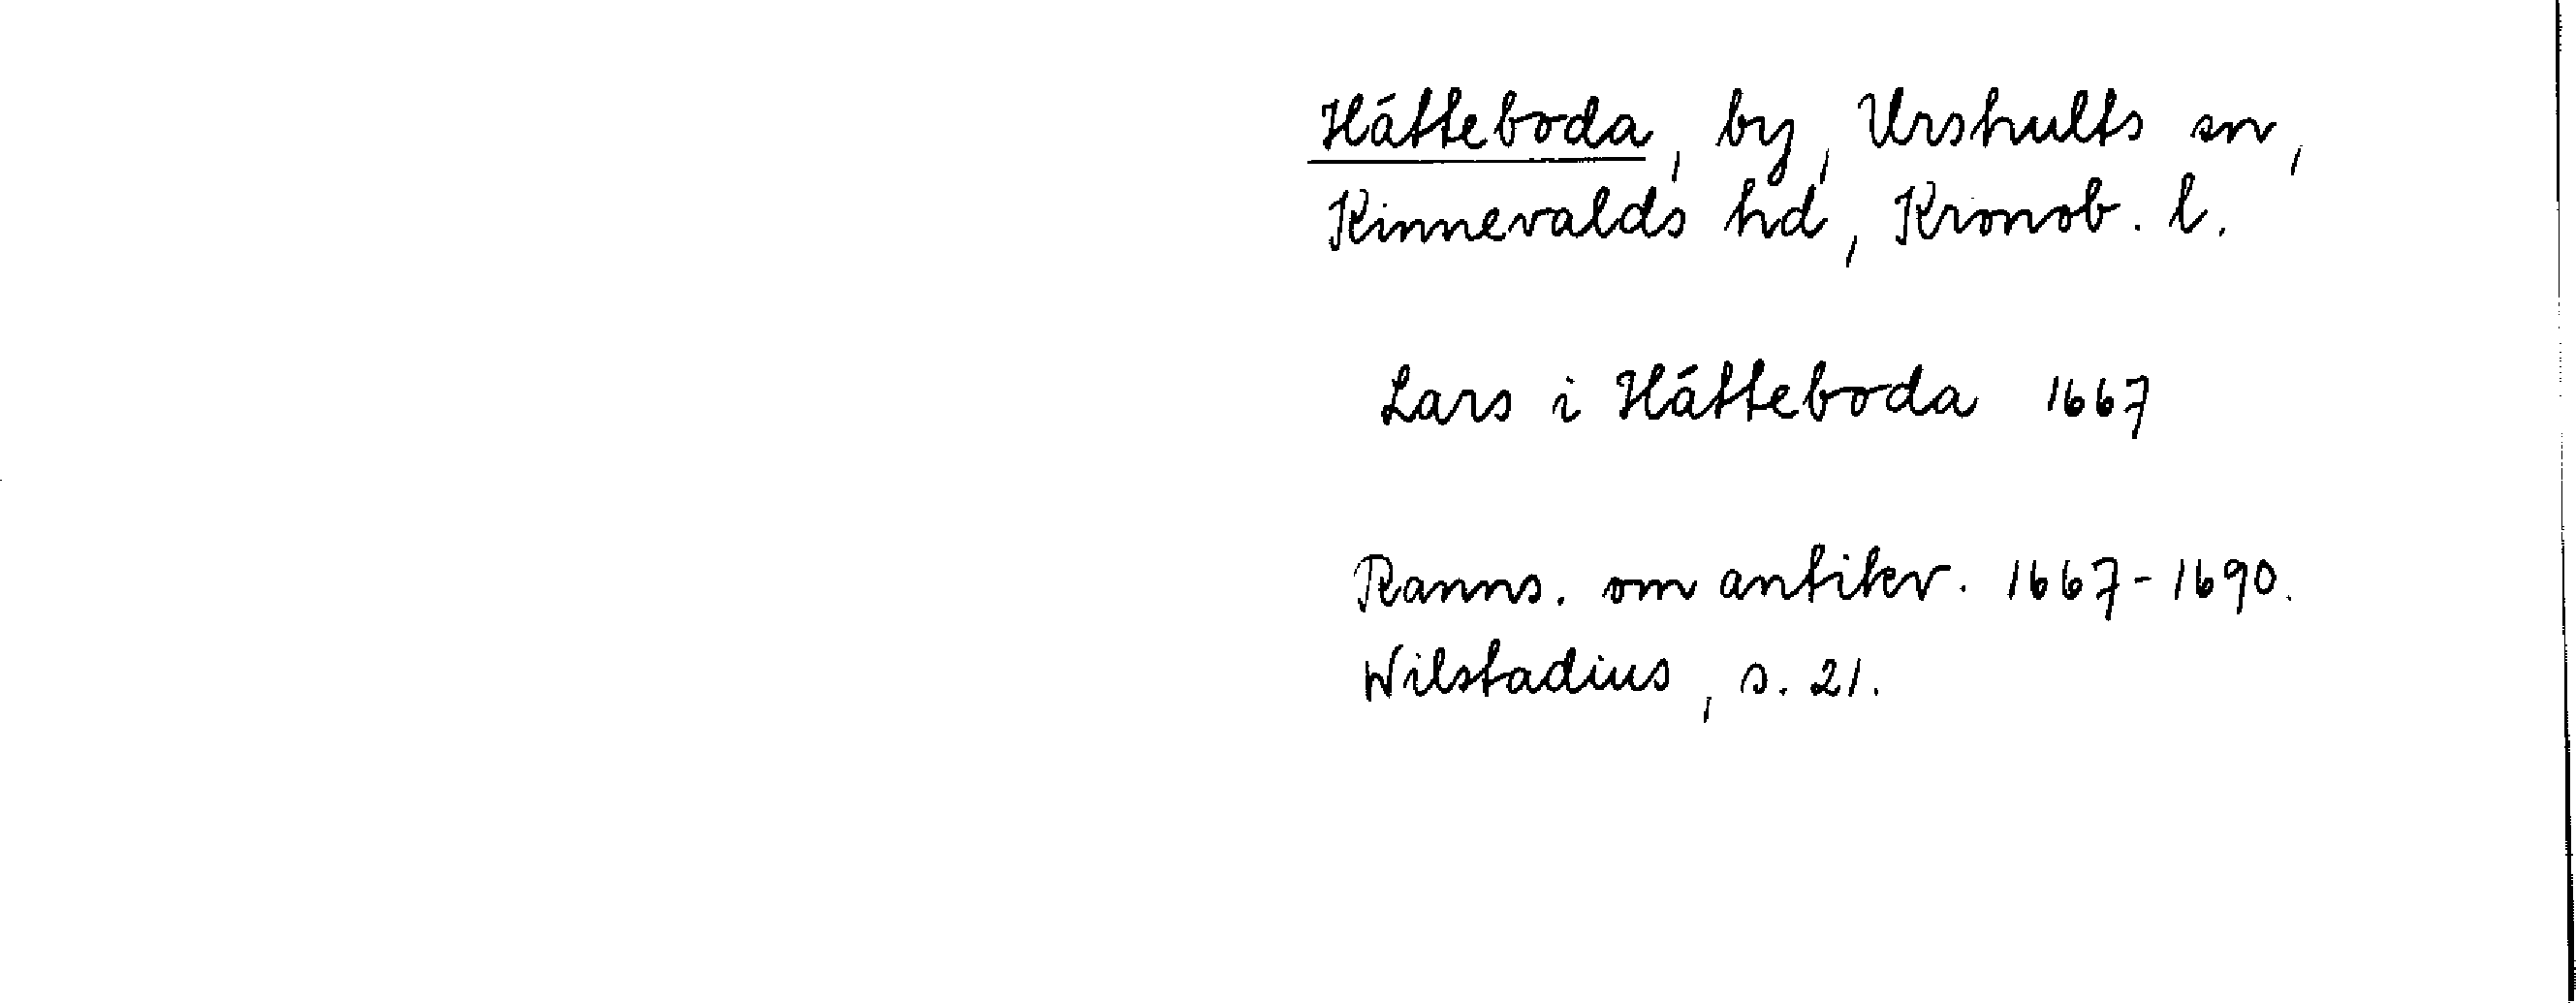 Hátteboda, by, Urshults sn,
Kinnevalds hd, Kronob. l.
Lars i Hátteboda 1667
Ranns. om antikv. 1667-1690.
Wilstadius, s. 21.